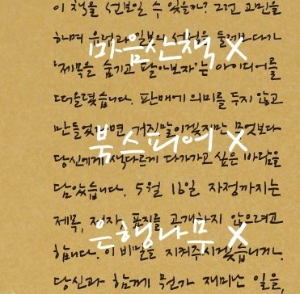 이 책을 선보일 수 있을까? 그런 고민을
하며 유럽과 일본의 서점을 돌다가
마음산책 X
'제목을 숨기고 팔아보자'는 아이디어를
떠올렸습니다. 판매에 의미를 두지 않고
만들었다면 거짓말이겠지만 무엇보다
북스피어 X
당신에게 색다르게 다가가고 싶은 바람을
담았습니다. 5월 16일 자정까지는
제목, 저자, 표지를 공개하지 않으려고
은행나무 X
합니다. 이 비밀을 지켜주시겠습니까.
당신과 함께 뭔가 재미난 일을,